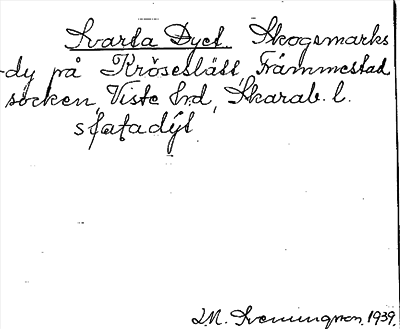 Svarta Dyet. Skogsmarks
-dy på Kröseslätt, Främmestad
socken, Viste hrd, Skarab. l.
svatadýt
J.M. Svenungson. 1939.